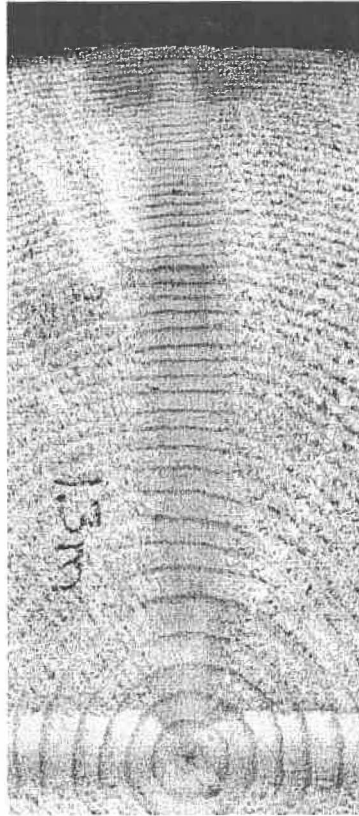 1.3 m